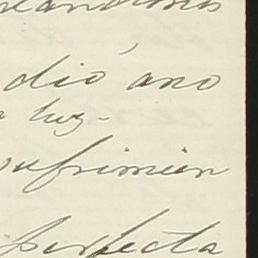 dió ano
luz-
sufrimien
perfecta